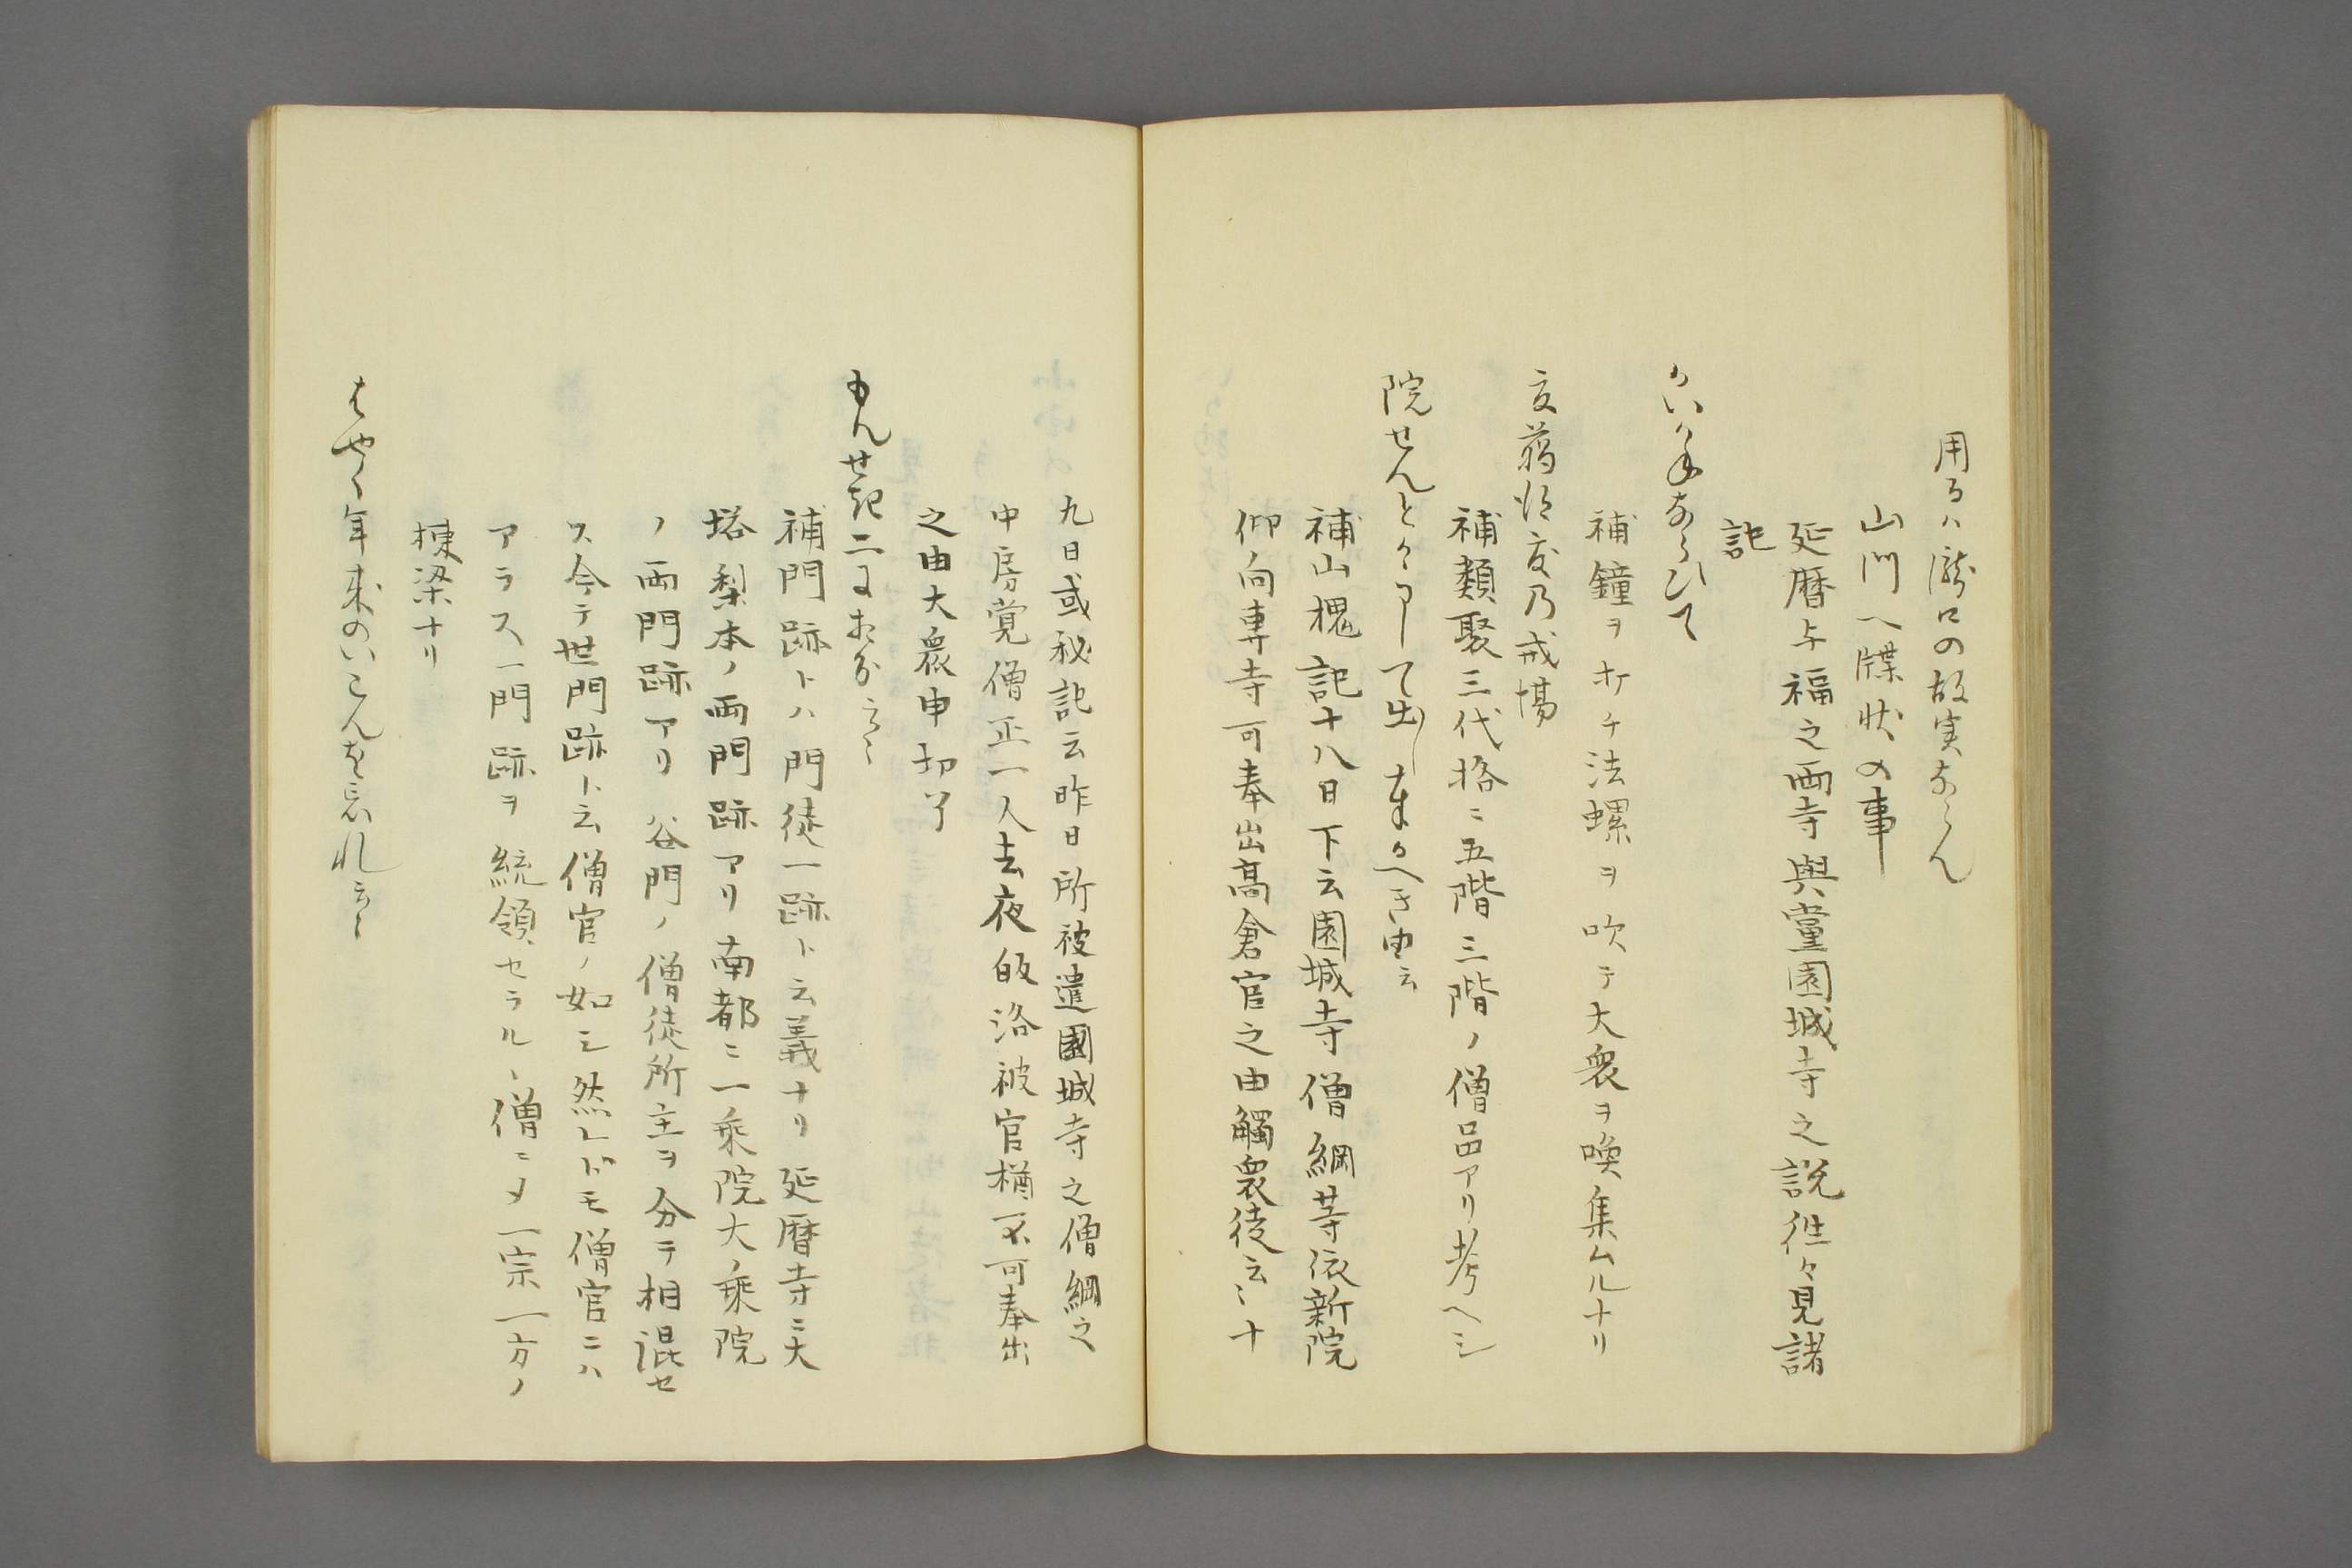 用るハ瀧口の故実ならん
山門へ牒状の事
延暦与福之両寺與黨園城寺之説徃々見諸
記
かいかねならひて
補鐘ヲオチ法螺ヲ吹テ大衆ヲ喚集ムルナリ
乃戒場
補類聚三代格ニ五階三階ノ僧品アリ考ヘシ
院せんとかうして出し奉るへき由云
補山槐記十八日下云園城寺僧綱等依新院
仰向専寺可奉出髙倉宮之由觸衆徒云〻十
九日或秘記云昨日所被遣園城寺之僧綱之
中房覚僧正一人去夜皈洛被官猶不可奉出
之由大衆申切了
もんせき二におが云〻
補門跡トハ門徒一跡ト云義ナリ延暦寺ニ大
塔梨本ノ両門跡アリ南都ニ一乗院大乗院
ノ両門跡アリ谷門ノ僧徒所主ヲ分テ相混セ
ス今テ世門跡ト云僧官ノ如シ然レドモ僧官ニハ
アラス一門跡ヲ統領セラルヽ僧ニメ一宗一方ノ
棟梁ナリ
はやく年来のいこんを忘れ云〻